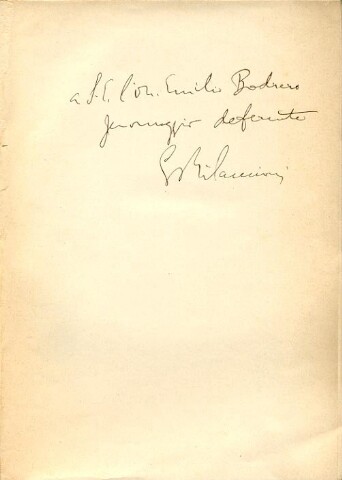 a S.E. l'On. Emilio Bodrero
per omaggio deferente
G. Bilancioni